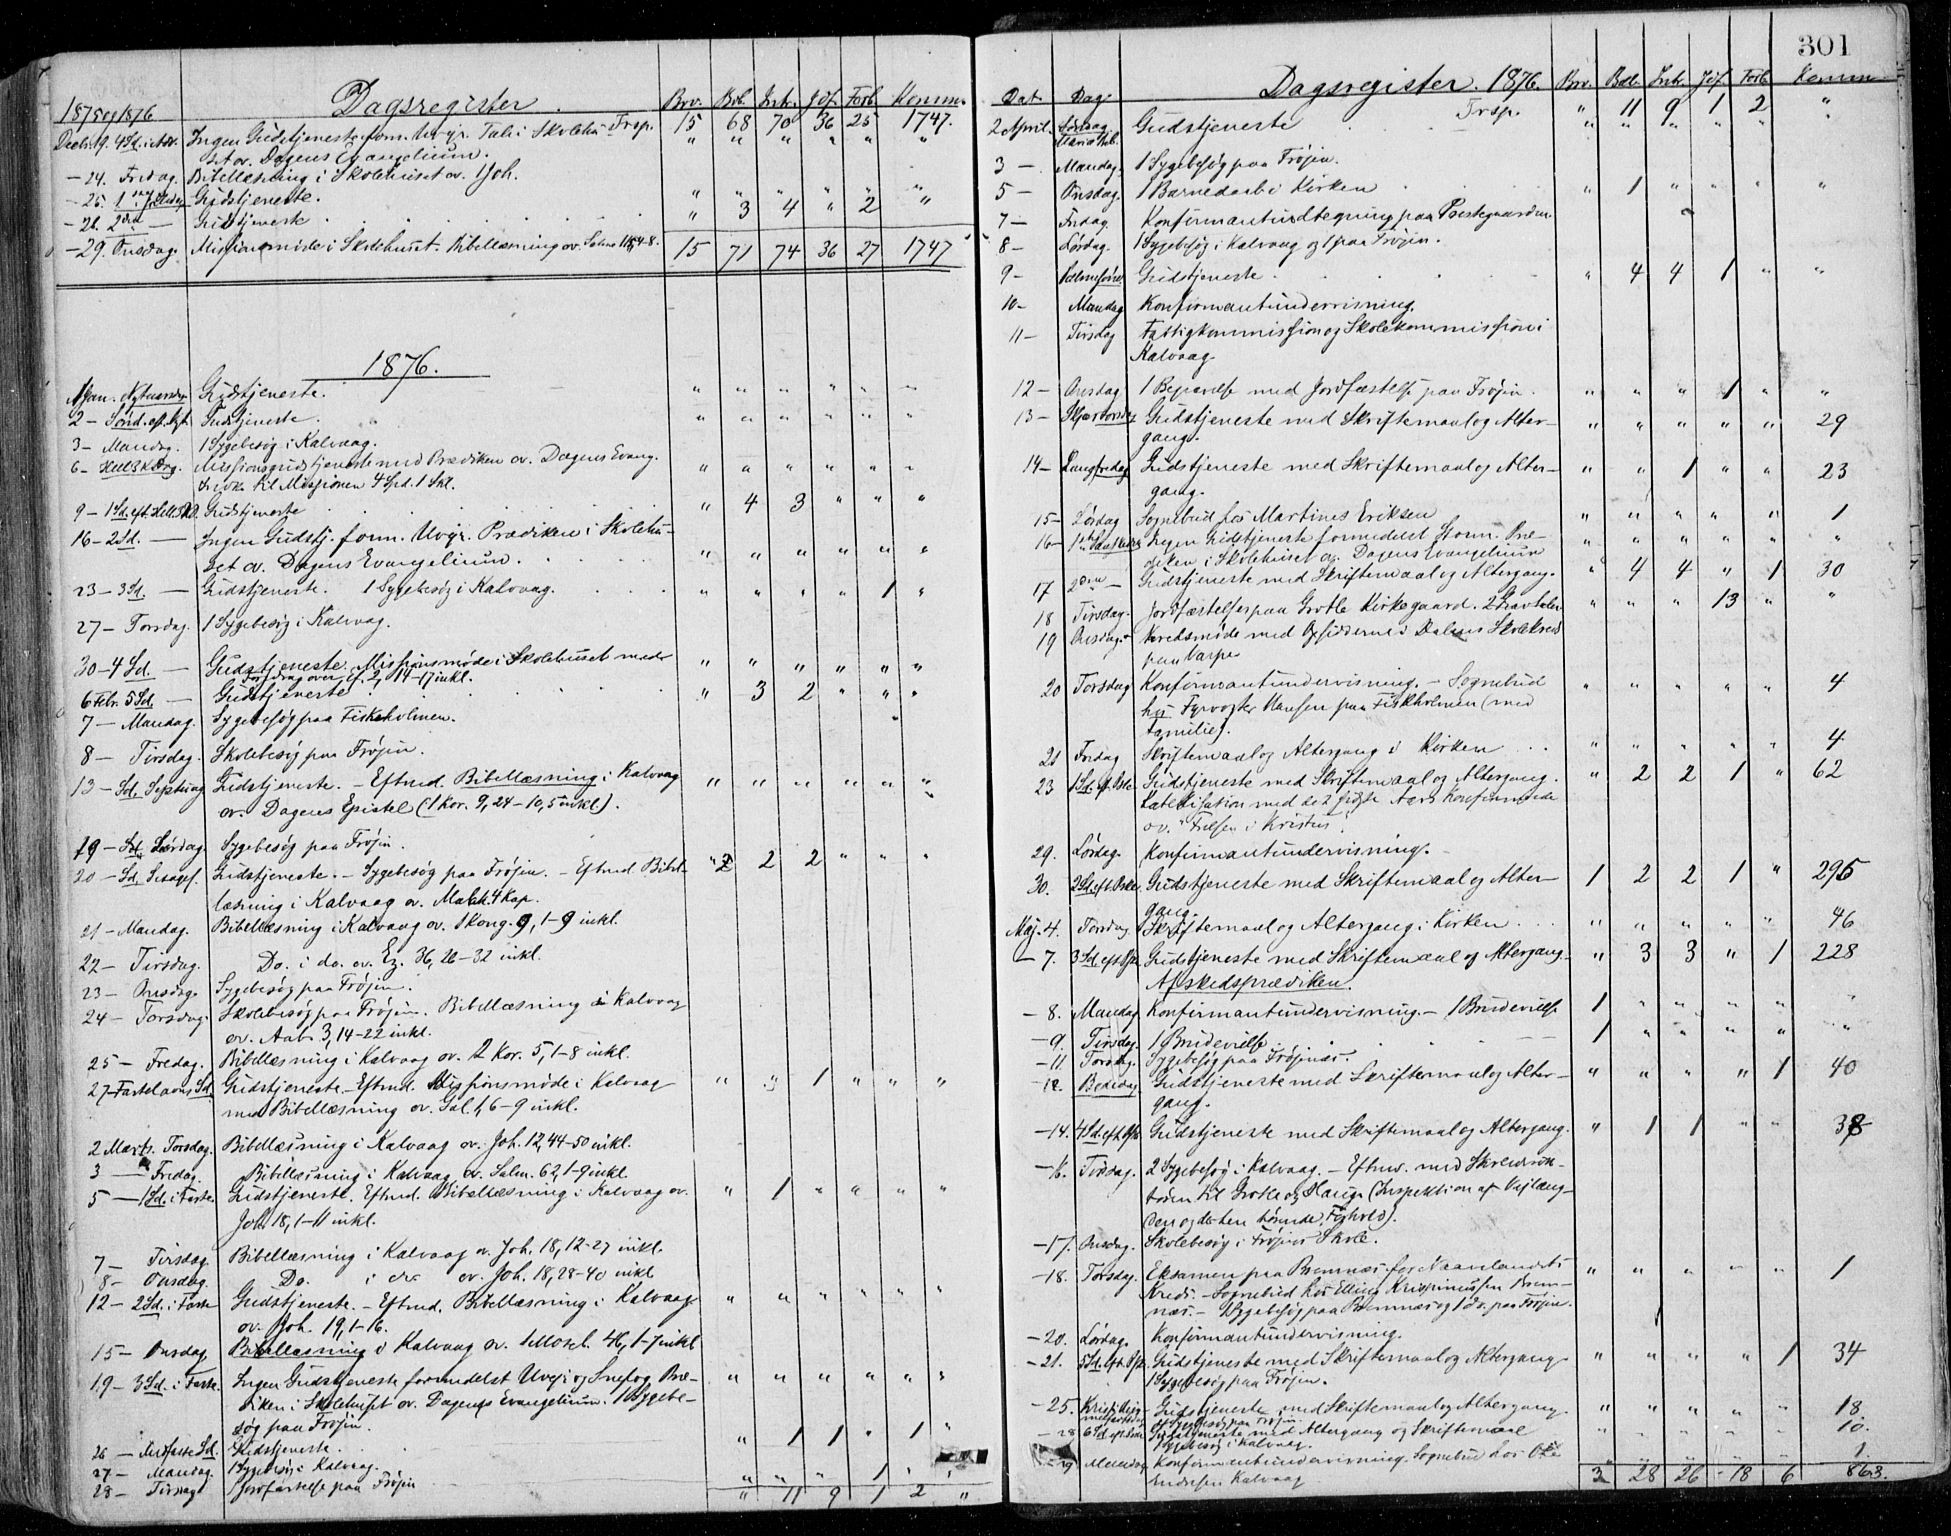 1875 og 1876 Dagsregister. Brv. Bdb. Intr. Jdf. Forb. Komm.
Trsp. 15 68 70 36 25 1747.
Decbr. 19. 4 Sd. i Adv. Ingen Gudstjeneste form. Uvejr. Tale i Skolehu- " " " " " "
set ov. Dagens Evangelium.
- 24. Fredag. Bibellæsning i Skolehuset ov. 1 Joh.
- 25. 1ste Juledag Gudstjeneste. " " " " " "
- 26. 2den — Gudstjeneste " 3 4 " 2 "
- 29. Onsdag. Missionsmøde i Skolehuset. Bibellæsning ov. 15 71 74 36 27 1747
1876.
1 Jan. Nytaarsdag Gudstjeneste. " " " " " "
2 - Sønd. eft. Nyt. Gudstjeneste. " " " " " "
3 - Mandag. 1 Sygebesøg i Kalvaag.
6 - Hell. 3 K. Dag. Missionsgudstjeneste med Prædiken ov. Dagens Evang. " " " " " "
til Missionen 4 Spd. 1 Skl.
9 - 1 Sd. eft. Hell. 3 K. Gudstjeneste " 4 3 " " "
16 - 2 Sd. — Ingen Gudstj. form. Uvejr. Prædiken i Skolehu-
set ov. Dagens Evangelium. " " " " " "
23 - 3 Sd. — Gudstjeneste. 1 Sygebesøg i Kalvaag. " " " " 1 "
27 - Torsdag. 1 Sygebesøg i Kalvaag.
30 - 4 Sd. — Gudstjeneste. Missionsmøde i Skolehuset med " " " " " "
Foredrag over Ef. 2, 14-17 inkl.
6 Febr. 5 Sd. — Gudstjeneste " 3 2 " " "
7 - Mandag. Sygebesøg paa Fiskeholmen.
8 - Tirsdag. Skolebesøg paa Frøjen.
13 - Sd. Septuag. Gudstjeneste. - Eftmd. Bibellæsning i Kalvaag " " " " " "
ov. Dagens Epistel (1 Kor. 9, 24 - 10, 5 inkl).
19 - Lørdag. Sygebesøg paa Frøjen.
20 - Sd. Sexages. Gudstjeneste. - Sygebesøg paa Frøjen. - Eftmd. Bibel- " 2 2 " " "
læsning i Kalvaag ov. Malak. 4 Kap.
21 - Mandag. Bibellæsning i Kalvaag ov. 1 Kong. 9, 1-9 inkl.
22 - Tirsdag. Do. i do. ov. Ez. 36, 26-32 inkl.
23 - Onsdag. Sygebesøg paa Frøjen.
24 - Torsdag. Skolebesøg paa Frøjen. Bibellæsning i Kalvaag
ov. Aab. 3, 14-22 inkl.
25 - Fredag. Bibellæsning i Kalvaag ov. 2 Kor. 5, 1-8 inkl.
27 - Fastelavns Sd. Gudstjeneste. - Eftmd. Missionsmøde i Kalvaag " " 1 " " "
med Bibellæsning ov. Gal. 1, 6-9 inkl.
2 Marts. Torsdag. Bibellæsning i Kalvaag ov. Joh. 12, 44-50 inkl.
3 — Fredag. Bibellæsning i Kalvaag ov. Salm. 62, 1-9 inkl.
5 - 1 Sd. i Faste. Gudstjeneste. Eftmd. Bibellæsning i Kalvaag ov. " 1 " " " "
Joh. 18, 1-11 inkl.
7 - Tirsdag. Bibellæsning i Kalvaag ov. Joh. 18, 12-27 inkl.
8 - Onsdag. Do. i do ov. Joh. 18, 28-40 inkl
12 - 2 Sd. i Faste Gudstjeneste. - Eftmd. Bibellæsning i Kalvaag " " " " " "
ov. Joh. 19, 1-16.
15 - Onsdag. Bibellæsning i Kalvaag ov. 1 Moseb. 46, 1-7 inkl
19 - 3 Sd. i Faste. Ingen Gudstjeneste formedelst Uvejr og Snefog. Præ- " " " " " "
diken i Skolehuset ov. Dagens Evangelium. 1 Sygebe-
søg paa Frøjen.
26 - Midfaste Sd. Gudstjeneste. " 1 1 " 1 "
27 - Mandag. 1 Sygebesøg i Kalvaag.
28 - Tirsdag. 1 Jordfæstelse paa Frøjen " " " 1 " "
" 11 9 1 2 "
301
Dat. Dag. Dagsregister. 1876. Brv. Bdb. Intr. Jdf. Forb. Komm.
Trsp. " 11 9 1 2 "
2 April. Søndag Mariæ Beb. Gudstjeneste " " " " " "
3 — Mandag. 1 Sygebesøg paa Frøjen.
5 — Onsdag. 1 Barnedaab i Kirken " 1 " " " "
7 — Fredag. Konfirmantindtegning paa Præstegaarden.
8 — Lørdag. 1 Sygebesøg i Kalvaag og 1 paa Frøjen.
9 — Palmesønd. Gudstjeneste. " 4 4 1 " "
10 — Mandag Konfirmantundervisning.
11 — Tirsdag Fattigkommission og Skolekommission i
Kalvaag
12 — Onsdag 1 Begravelse med Jordfæstelse paa Frøjen. " " " 1 " "
13 — Skjærtorsdag Gudstjeneste med Skriftemaal og Alter- " " " " " 29
gang.
14 — Langfredag Gudstjeneste med Skriftemaal og Alter- " " 1 " " 23
gang.
15 — Lørdag Sognebud hos Martines Eriksen " " " " " 1
16 — 1ste Paaskedag Ingen Gudstjeneste formedelst Storm. Præ- " " " " " "
diken i Skolehuset ov. Dagens Evangelium
17 2den — Gudstjeneste med Skriftemaal og Altergang. " 4 4 " 1 30
18 Tirsdag. Jordfæstelser paa Grotle Kirkegaard. 2 Gravtaler " " " 13 " "
19 Onsdag. Kredsmøde med Opsidderne i Dalens Skolekreds
paa Varpe
20 Torsdag Konfirmantundervisning. - Sognebud " " " " " 4
hos Fyrvogter Hansen paa Fiskholmen (med
Familie).
21 Fredag Skriftemaal og Altergang i Kirken " " " " " 4
23 1 Sd. ef. Paaske. Gudstjeneste med Skriftemaal og Altergang. " 2 2 1 " 62
Katekisation med de 2 sidste Aars Konfirmerede
ov. "Frelsen i Kristus".
29. Lørdag. Konfirmantundervisning. -
30. 2 Sd. eft. Paaske. Gudstjeneste med Skriftemaal og Alter- 1 2 2 1 " 295
gang.
Maj. 4. Torsdag. Skriftemaal og Altergang i Kirken " " " " " 46
— 7. 3 Sd. eft. Paaske Gudstjeneste med Skriftemaal og Altergang. " 3 3 " 1 228
Afskedsprædiken.
— 8. Mandag. Konfirmantundervisning. - 1 Brudevielse 1 " " " " "
— 9. Tirsdag. 1 Brudevielse 1 " " " " "
— 11 Torsdag. Sygebesøg paa Frøjnæs.
— 12. Bededag. Gudstjeneste med Skriftemaal og Alter- " " " " 1 40
gang.
— 14. 4 Sd. eft. Paaske Gudstjeneste med Skriftemaal og Altergang. " 1 1 " " 38
— 16. Tirsdag. 2 Sygebesøg i Kalvaag. - Efterm. med
til Grotle og Hauge (Inspektion af Vejlæng-
den og derten hørende Forhold).
— 17. Onsdag. Skolebesøg i Frøjens Skole.
— 18. Torsdag. Eksamen paa Bremnæs for Naanlandets " " " " " 1
Kreds. - Sognebud hos Elling Brem-
næs. - 1 Sygebesøg paa Bremnæs og 1 do. paa Frøjen.
— 20. Lørdag. Konfirmantundervisning.
— 21. 5 Sd. eft. Paaske Gudstjeneste med Skriftemaal og Altergang " " " " 1 34
1 Sygebesøg paa Frøjen.
— 25. Kristi Him- melfartsdag Gudstjeneste med Skriftemaal og Altergang " " " " " 18
Sygebesøg paa Frøjen.
— 28 6 Sd. eft. Paaske Gudstjeneste med Altergang og Skriftemaal " " " " " 10.
Sygebesøg i Kalvaag.
— 29 Mandag Konfirmantundervisning. Sognebud hos Ole " " " " " 1
Endresen Kalvaag 3 28 26 18 6 863.